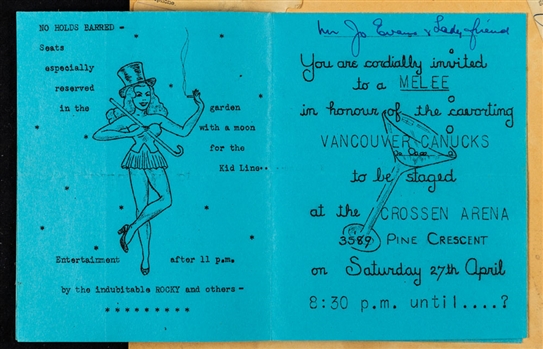 NO HOLDS BARRED -
Seats
especially
reserved
in the garden
with a moon
for the
Kid Line--
Entertainment after 11 p.m.
by the indubitable ROCKY and others -
* * * * * * * * *
Mr Jo Evans & Lady-friend
You are cordially invited
to a MELEE
in honour of the cavorting
VANCOUVER CANUCKS
to be staged
at the CROSSEN ARENA
3589 PINE CRESCENT
on Saturday 27th April
8:30 p.m. until....?